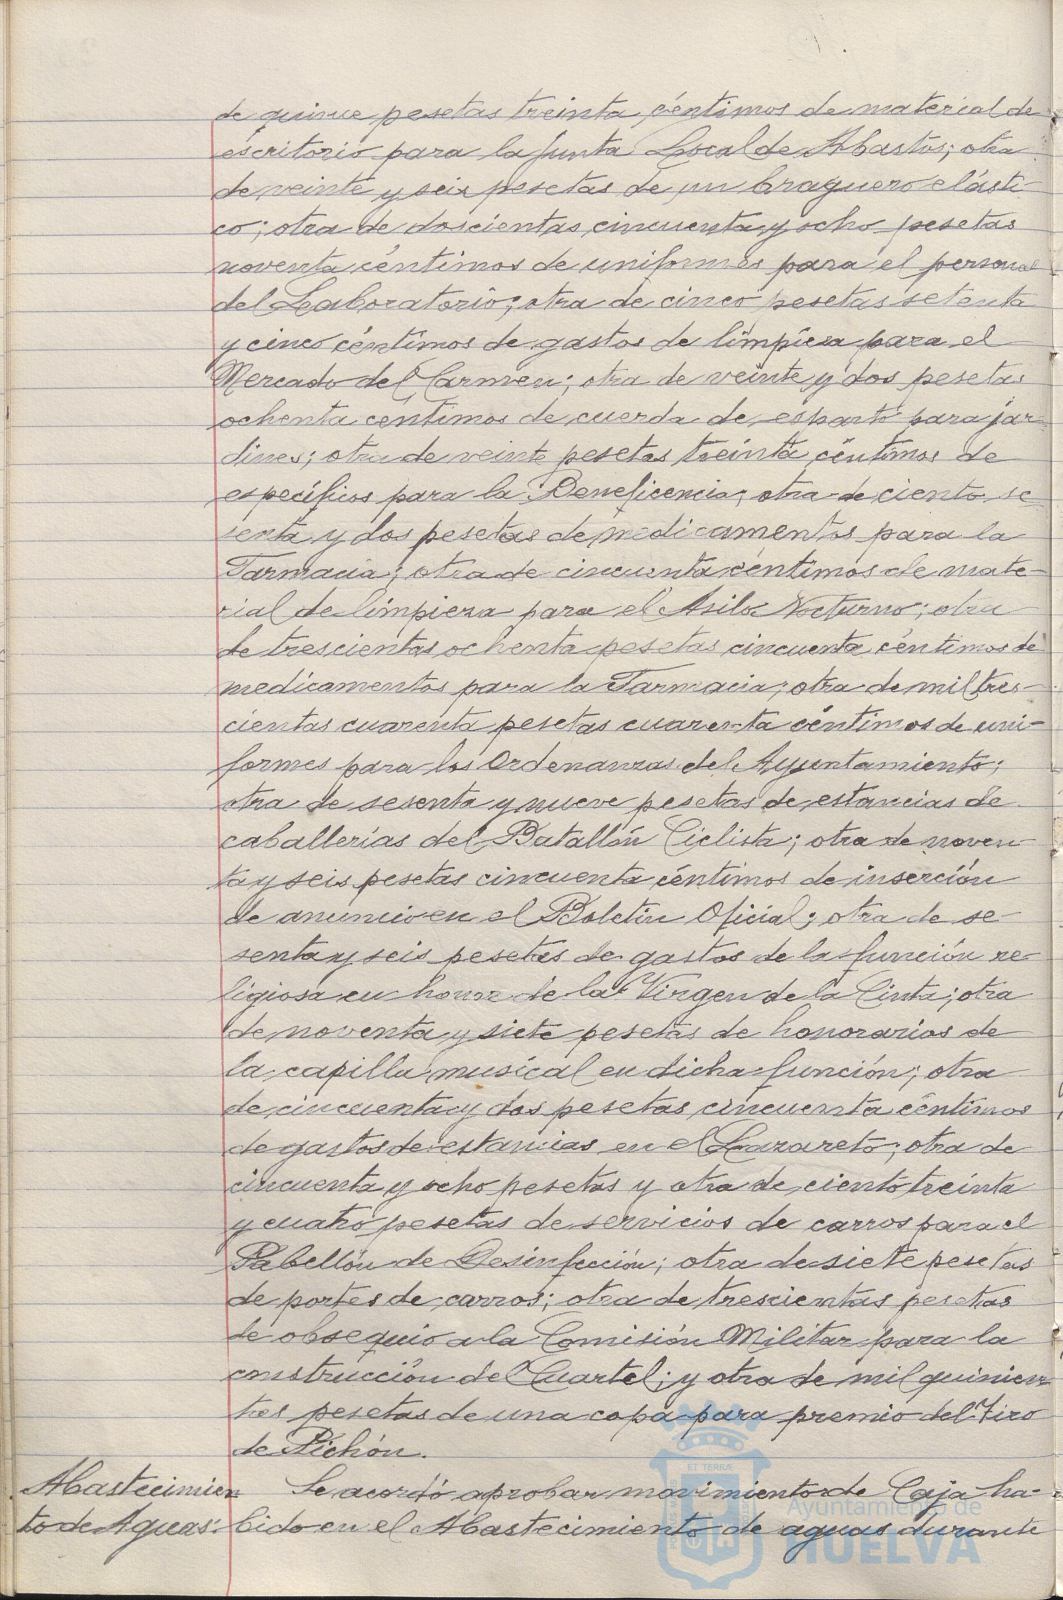 de quince pesetas treinta céntimos de material de
escritorio para la Junta Local de Abastos; otra
de veinte y seis pesetas de un braguero elásti-
co; otra de doscientas cincuenta y ocho pesetas
noventa céntimos de uniformes para el personal
del Laboratorio; otra de cinco pesetas setenta
y cinco céntimos de gastos de limpieza para el
Mercado del Carmen; otra de veinte y dos pesetas
ochenta céntimos de cuerda de esparto para jar-
dines; otra de veinte pesetas treinta céntimos de
específicos para la Beneficencia; otra de ciento se-
senta y dos pesetas de medicamentos para la
Farmacia; otra de cincuenta céntimos de mate-
rial de limpieza para el Asilo Nocturno; otra
de trescientas ochenta pesetas cincuenta céntimos de
medicamentos para la Farmacia; otra de mil tres-
cientas cuarenta pesetas cuarenta céntimos de uni-
formes para los Ordenanzas del Ayuntamiento;
otra de sesenta y nueve pesetas de estancias de
caballerías del Batallón Ciclista; otra de noven-
ta y seis pesetas cincuenta céntimos de inserción
de anuncio en el Boletín Oficial; otra de se-
senta y seis pesetas de gastos de la función re-
ligiosa en honor de la Virgen de la Cinta; otra
de noventa y siete pesetas de honorarios de
la capilla musical en dicha función; otra
de cincuenta y dos pesetas cincuenta céntimos
de gastos de estancias en el Lazareto; otra de
cincuenta y ocho pesetas y otra de ciento treinta
y cuatro pesetas de servicios de carros para el
Pabellón de Desinfección; otra de siete pesetas
de portes de carros; otra de trescientas pesetas
de obsequio a la Comisión Militar para la
construcción del Cuartel; y otra de mil quinien-
tas pesetas de una copa para premio del Tiro
de Pichón.
Abastecimien Se acordó aprobar movimiento de Caja ha-
to de Aguas: bido en el Abastecimiento de aguas durante
Ayuntamiento de
HUELVA